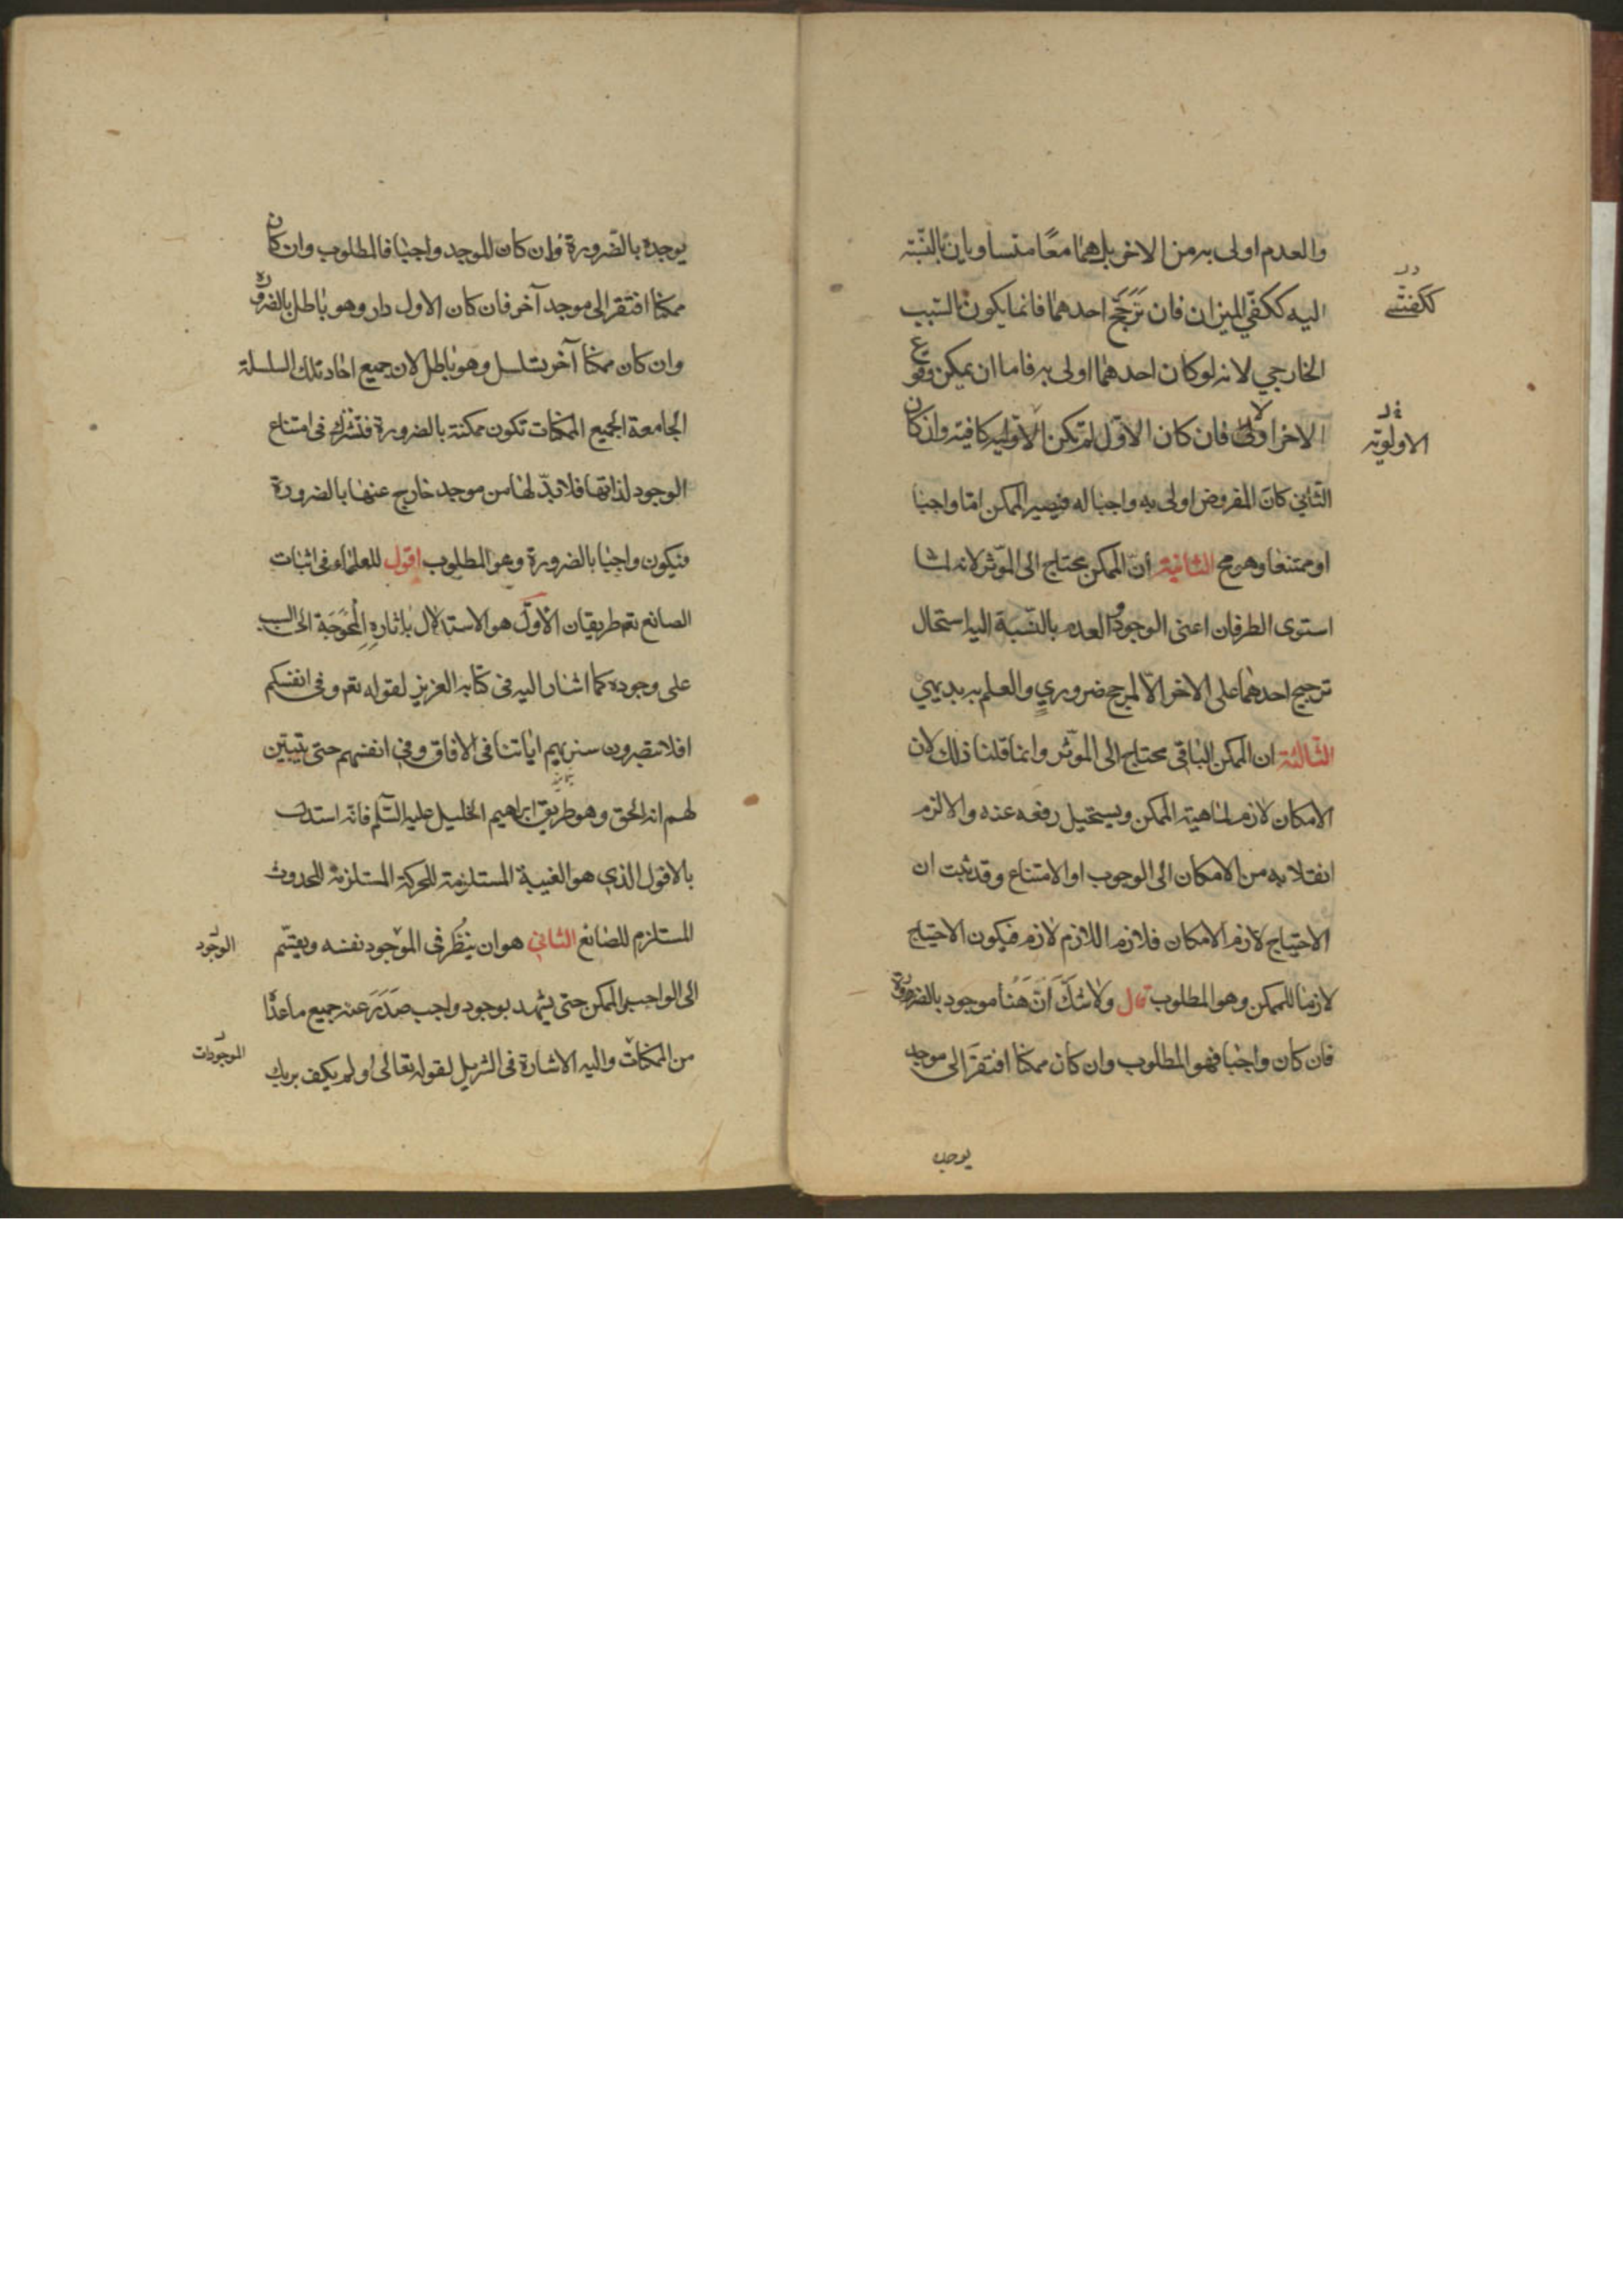 والعدم اولى به من الاخر بل هما معًا متساويان بالنّسبة
اليه ككفّي الميزان فان تَرَجَّح احدهما فانما يكون بالسّبب
ككفتي
الخارجي لانه لو كان احدهما اولى به فاما ان يمكن وقوع
الاخر اولا فان كان الاوّل لم تكن الاولية كافية وان كان
الاولويّة
الثّاني كان المفروض اولى به واجبا له فيصير الممكن امّا واجبا
او ممتنعا وهو مح الثانية أنّ الممكن محتاج الى المؤثر لانه لما
استوى الطرفان اعنى الوجود و العدم بالنّسبة اليه استحال
ترجيح احدهما على الاخر الا لمرجح ضروري والعلم به بديهي
الثّالثة ان الممكن الباقي محتاج الى المؤثر وانما قلنا ذلك لان
الامكان لازم لماهية الممكن ويستحيل رفعه عنه والا لزم
انقلابه من الامكان الى الوجوب او الامتناع وقد ثبت ان
الاحتياج لازم الامكان فلازم اللازم لازم فيكون الاحتياج
لازما للممكن وهو المطلوب قال ولا شكَّ اَنَّ هَنُا موجود بالضرورة
فان كان واجبا فهو المطلوب وان كان ممكنا افتقرَ الى موجد
يوجده
يوجده بالضّرورة فان كان الموجد واجبا فالمطلوب وان كان
ممكنا افتقر الى موجد آخر فان كان الاول دار وهو باطل بالضرورة
وان كان ممكنا آخر تسلسل وهو باطل لان جميع احاد تلك السلسلة
الجامعة لجميع الممكنات تكون ممكنة بالضرورة فتشترك في امتناع
الوجود لذاتها فلا بدّ لها من موجد خارج عنها بالضرورة
فيكون واجبا بالضرورة وهو المطلوب اقول للعلماء في اثبات
الصانع تعم طريقان الأوّل هو الاستدلال باثارهِ المُحوجَة الى السبب
على وجوده كما اشار اليه في كتابه العزيز لقوله تعم وفي انفسكم
افلا تبصرون سنريهم اياتنا في الافاق وفي انفسهم حتى يتبيّن
لهم انه الحق وهو طريق ابراهيم الخليل عليه السّلم فانه استدل
بالافول الذي هو الغيبة المستلزمة للحركة المستلزمة للحدوث
المستلزم للصانع الثاني هو ان ينظُر في الموجود نفسه ويقسّم
الوجود
الى الواجب والممكن حتى يشهد بوجود واجب صَدَرَ عنه جميع ما عدا
من الممكنات واليه الاشارة في التنزيل لقوله تعالى اولم يكف بربك
الموجودات